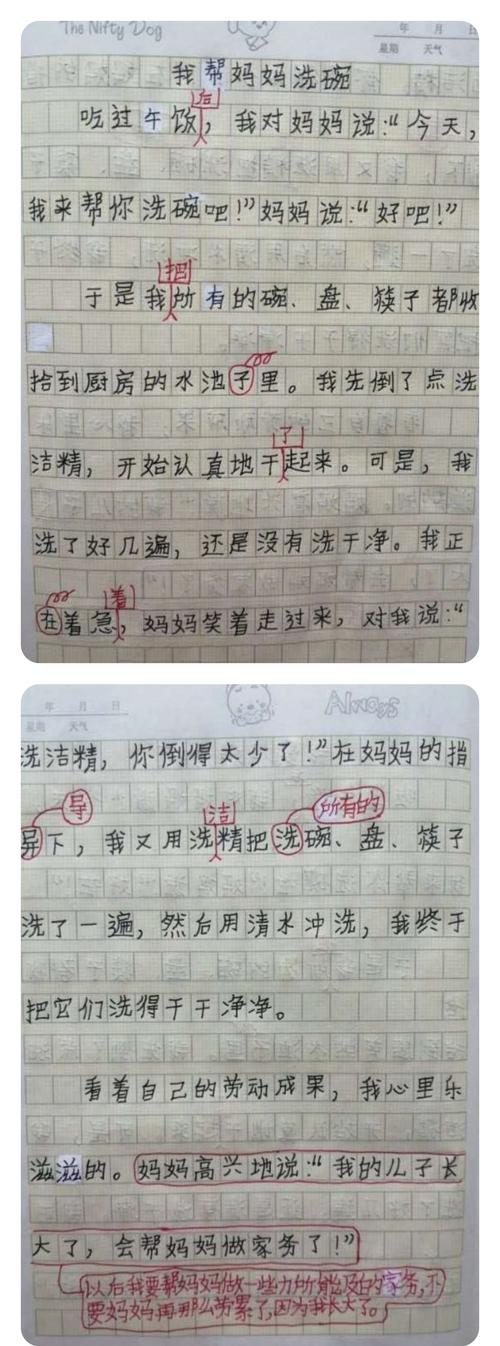 The Nifty Dog
年 月 日
星期 天气
我帮妈妈洗碗
后
吃过午饭，我对妈妈说：“今天，
我来帮你洗碗吧！”妈妈说：“好吧！”
把
于是我所有的碗、盘、筷子都收
拾到厨房的水池子里。我先倒了点洗
了
洁精，开始认真地干起来。可是，我
洗了好几遍，还是没有洗干净。我正
着
在着急，妈妈笑着走过来，对我说：“
年 月 日
星期 天气
Always
洗洁精，你倒得太少了！”在妈妈的指
导 洁 所有的
导下，我又用洗精把洗碗、盘、筷子
洗了一遍，然后用清水冲洗，我终于
把它们洗得干干净净。
看着自己的劳动成果，我心里乐
滋滋的。妈妈高兴地说：“我的儿子长
大了，会帮妈妈做家务了！”
以后我要帮妈妈做一些力所能及的家务，不
要妈妈再那么劳累了，因为我长大了。